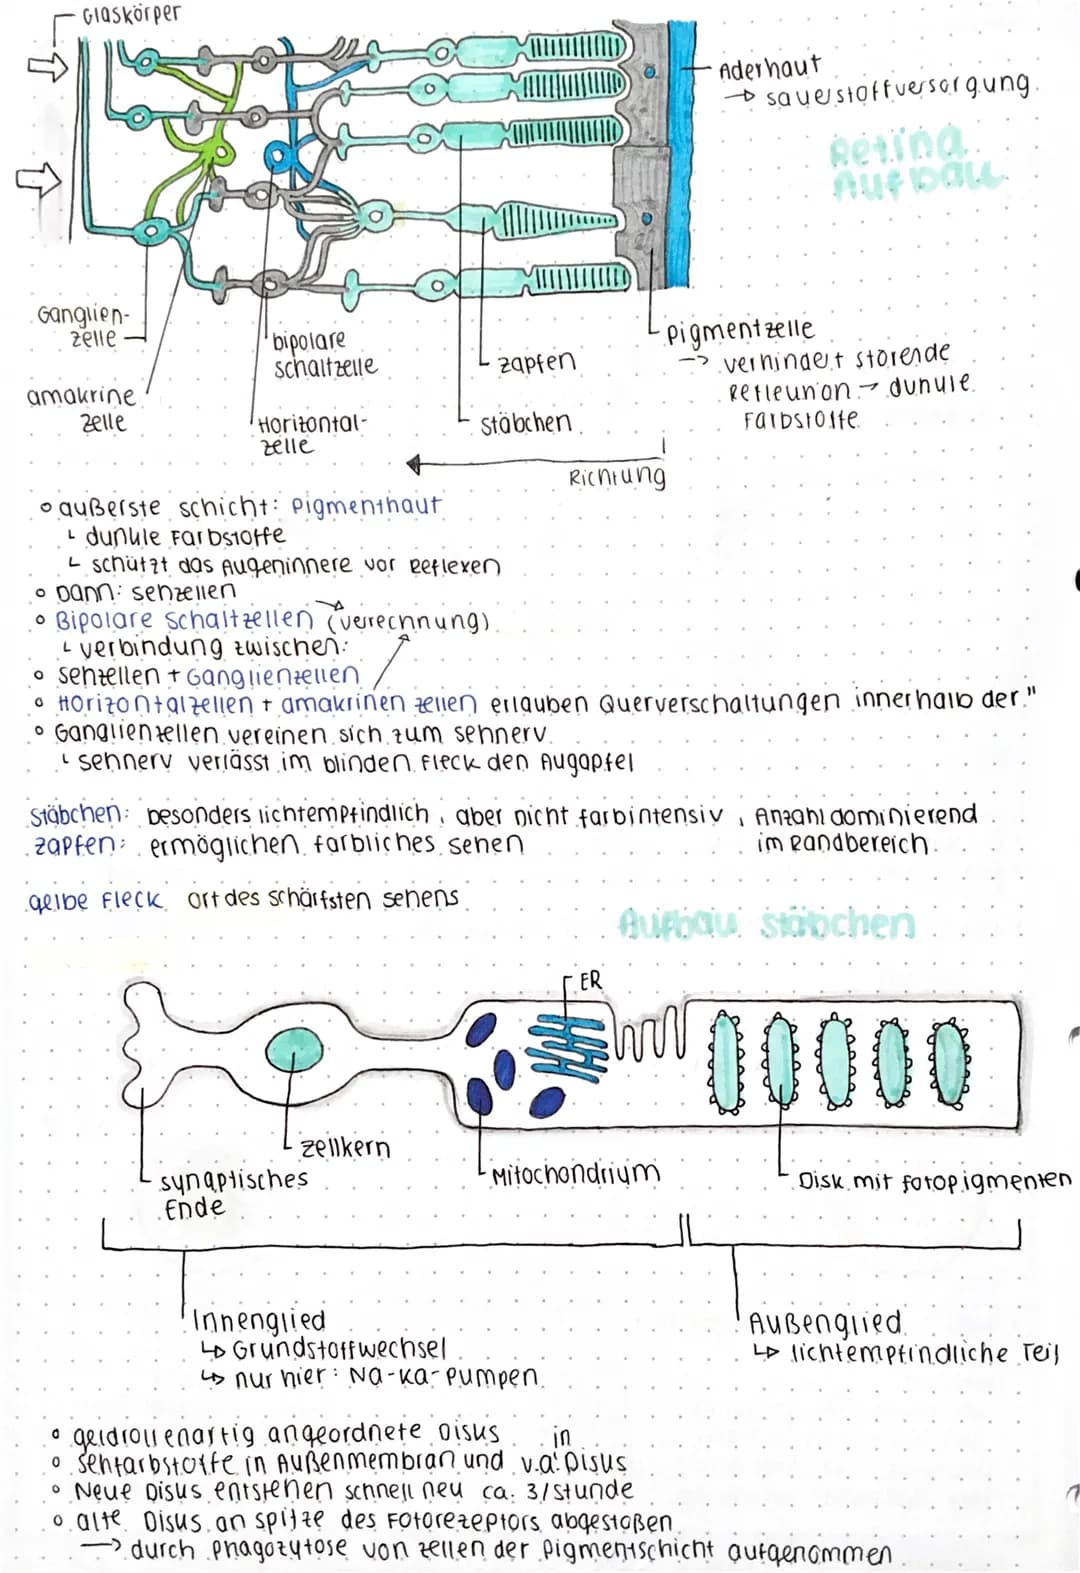 Glaskörper
Aderhaut
→ sauerstoffversorgung.
Retina
Aufbau
Ganglien-
zelle
bipolare
schaltzelle
zapfen
pigmentzelle
-> verhindert störende
Reflexion → dunkle
Farbstoffe
amakrine
zelle
Horizontal-
zelle
stäbchen
Richtung
außerste schicht: Pigmenthaut
dunkle Farbstoffe
schützt das Augeninnere vor Reflexen
Dann: sehzellen
Bipolare schaltzellen (verrechnung)
verbindung zwischen:
sehzellen + Ganglienzellen
Horizontalzellen + amakrinen zellen erlauben Querverschaltungen innerhalb der "
Ganglienzellen vereinen sich zum sehnerv
sehnerv verlässt im blinden Fleck den Augapfel
Stäbchen: besonders lichtempfindlich, aber nicht farbintensiv, Anzahl dominierend
im Randbereich
zapfen: ermöglichen farbliches sehen
gelbe Fleck ort des schärfsten sehens
Aufbau stäbchen
ER
zellkern
synaptisches
Ende
Mitochondrium
Disk mit fotopigmenten
Innenglied
↳ Grundstoffwechsel
↳ nur hier: Na-Ka-Pumpen
Außenglied
↳ lichtempfindliche Teil
geldrollenartig angeordnete Disks
sehfarbstoffe in Außenmembran und v.a. in Disks
Neue Disks entstehen schnell neu ca. 3/stunde
alte Disks an spitze des Fotorezeptors abgestoßen
-> durch phagozytose von zellen der pigmentschicht aufgenommen